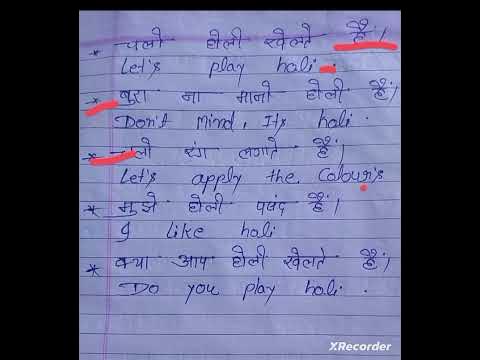 * चलो होली खेलते हैं।
Let's play holi.
* बुरा ना मानो होली हैं।
Don't Mind, Its holi.
* चलो रंग लगाते हैं।
Let's apply the Colour's
* मुझे होली पसंद हैं।
I like holi
* क्या आप होली खेलते हैं।
Do you play holi.
XRecorder